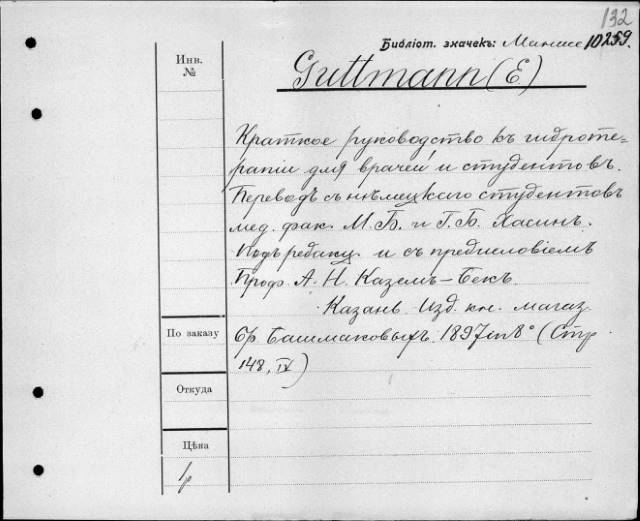 132
Библіот. значекъ: 10259.
Инв. №
Guttmann (E)
Краткое руководство къ гидроте-
рапіи для врачей и студентовъ.
Переводъ съ нѣмецкаго студентовъ
мед. фак. М. Б. и Г. Б. Хасинъ.
Подъ редакц. и съ предисловіемъ
Проф. А. Н. Каземъ-Бекъ
Казань Изд. кн. магаз.
По заказу
Бр. Башмаковыхъ. 1897 in 8° (Стр.
148, IV)
Откуда
Цѣна
1р